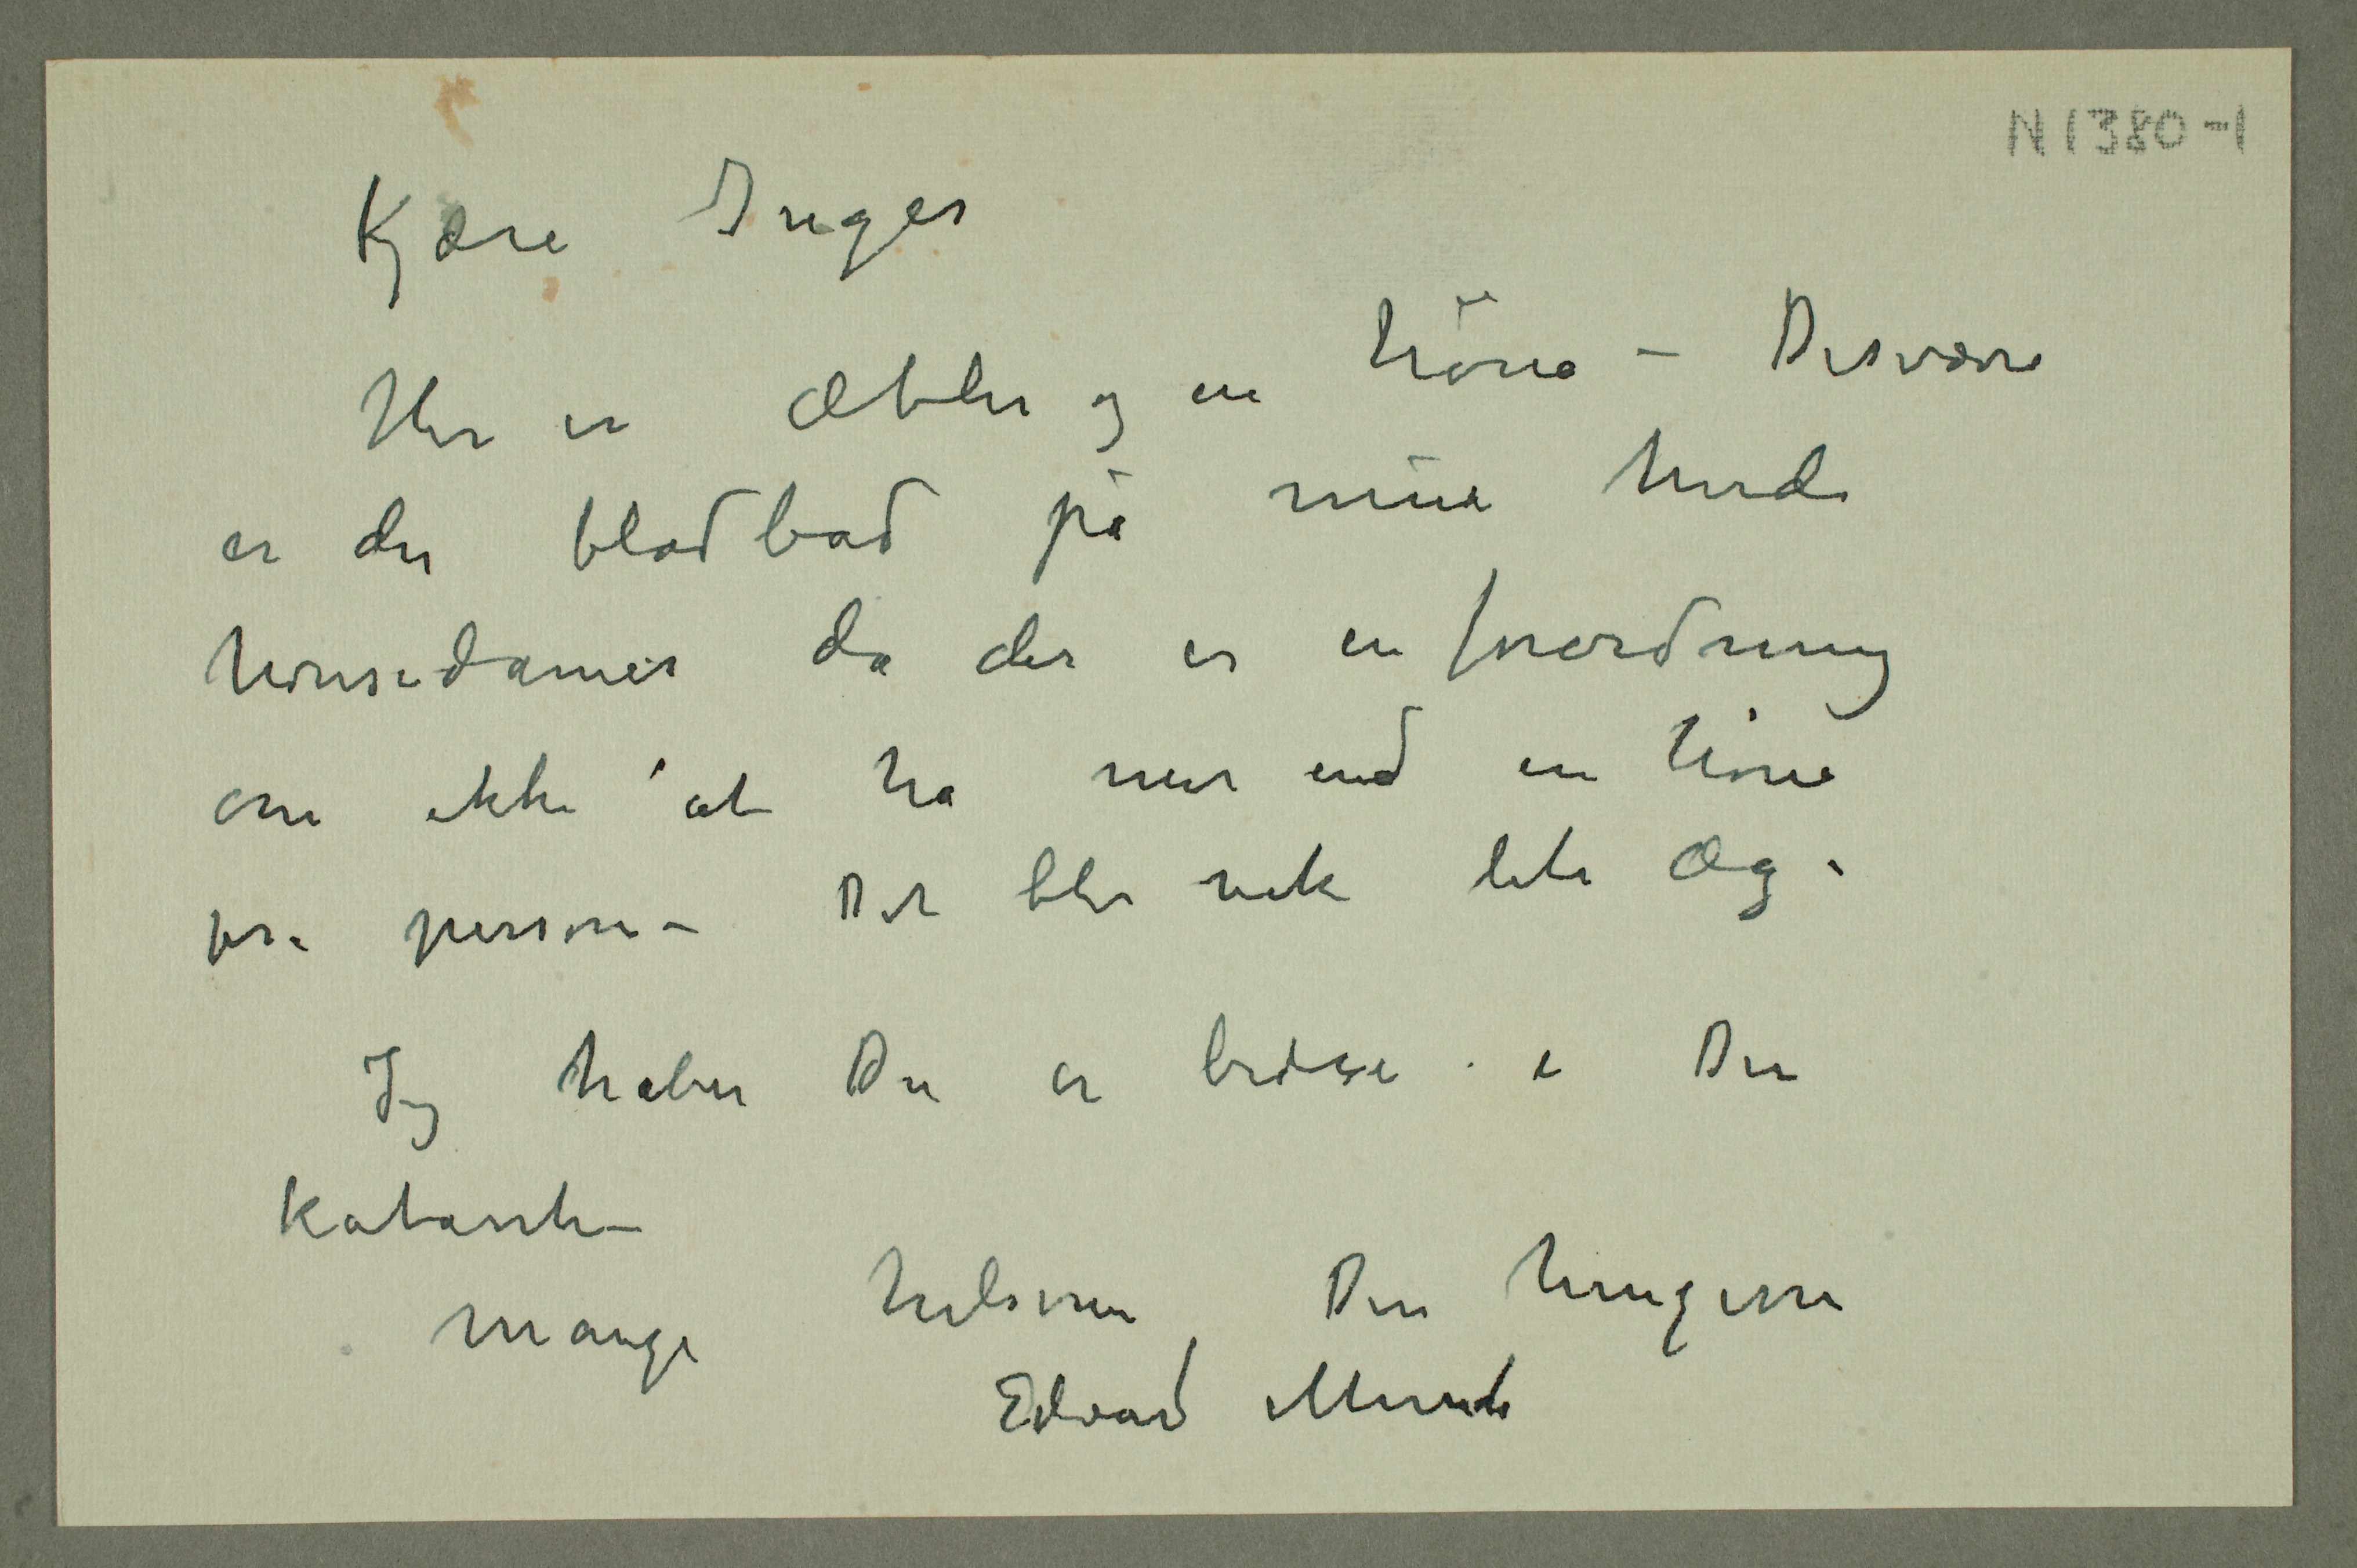 N 1380-1
Kjære Inger
Her er æbler og en höne – Desværre
er der blodbad på mine hvide
hønsedamer da der er en forordning
om ikke at ha mer end en høne
pr. person – Det blir nok lite æg.
Jeg håber Du er bedre i Din
katarrh –
Mange hilsener Din hengivne
Edvard Munch